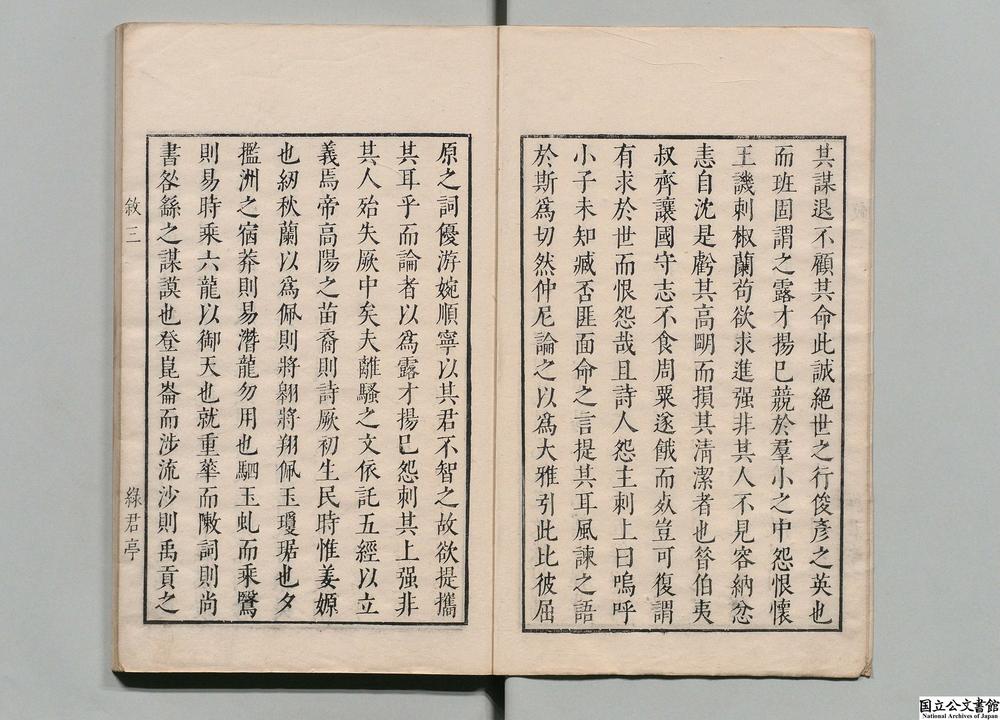 其謀退不顧其命此誠絕世之行俊彥之英也
而班固謂之露才揚己競於羣小之中怨恨懷
王譏刺椒蘭苟欲求進强非其人不見容納忿
恚自沈是虧其高明而損其清潔者也昝伯夷
叔齊讓國守志不食周粟遂餓而死豈可復謂
有求於世而恨怨哉且詩人怨主刺上曰嗚呼
小子未知臧否匪面命之言提其耳風諫之語
於斯爲切然仲尼論之以爲大雅引此比彼屈
原之詞優游婉順寧以其君不智之故欲提攜
其耳乎而論者以爲露才揚己怨刺其上强非
其人殆失厥中矣夫離騷之文依託五經以立
義焉帝高陽之苗裔則詩厥初生民時惟姜嫄
也紉秋蘭以爲佩則將翱將翔佩玉瓊琚也夕
擥洲之宿莽則易潛龍勿用也駟玉虬而乘鷖
則易時乘六龍以御天也就重華而敶詞則尚
書咎繇之謀謨也登崑崙而涉流沙則禹貢之
敘三
綠君亭
国立公文書館
National Archives of Japan